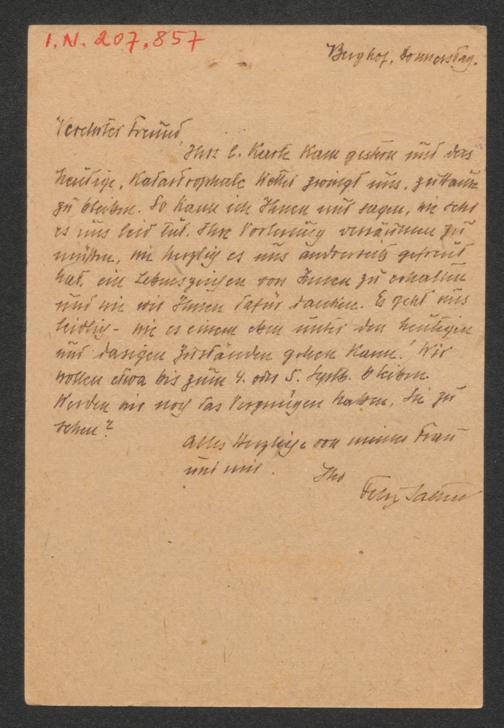 I.N. 207.857
Berghof, Donnerstag.
Verehrter Freund,
Ihre l. Karte kam gestern und das
heutige, katastrophale Wetter zwingt uns, zuhause
zu bleiben. So kann ich Ihnen nur sagen, wie sehr
es uns leid tut, Ihre Vorlesung versäumen zu
müssen, wie herzlich es uns anderseits gefreut
hat, ein Lebenszeichen von Ihnen zu erhalten
und wie wir Ihnen dafür danken. Es geht uns
leidlich – wie es einem eben unter den heutigen
und Zuständen gehen kann! Wir
wollen etwa bis zum 4. oder 5. Septb. bleiben.
Werden wir noch das Vergnügen haben, Sie zu
sehen?
Alles Herzliche von meiner Frau
und mir.
Ihr
Felix Salten